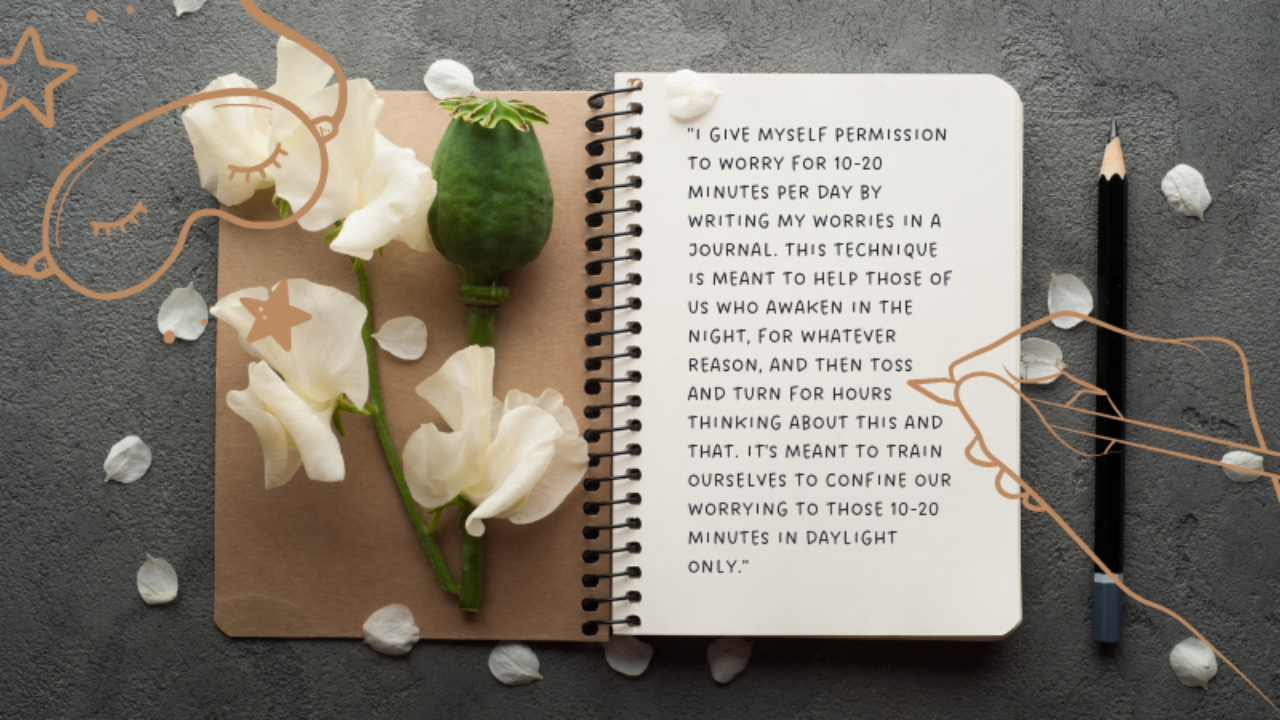 "I GIVE MYSELF PERMISSION
TO WORRY FOR 10-20
MINUTES PER DAY BY
WRITING MY WORRIES IN A
JOURNAL. THIS TECHNIQUE
IS MEANT TO HELP THOSE OF
US WHO AWAKEN IN THE
NIGHT, FOR WHATEVER
REASON, AND THEN TOSS
AND TURN FOR HOURS
THINKING ABOUT THIS AND
THAT. IT'S MEANT TO TRAIN
OURSELVES TO CONFINE OUR
WORRYING TO THOSE 10-20
MINUTES IN DAYLIGHT
ONLY."